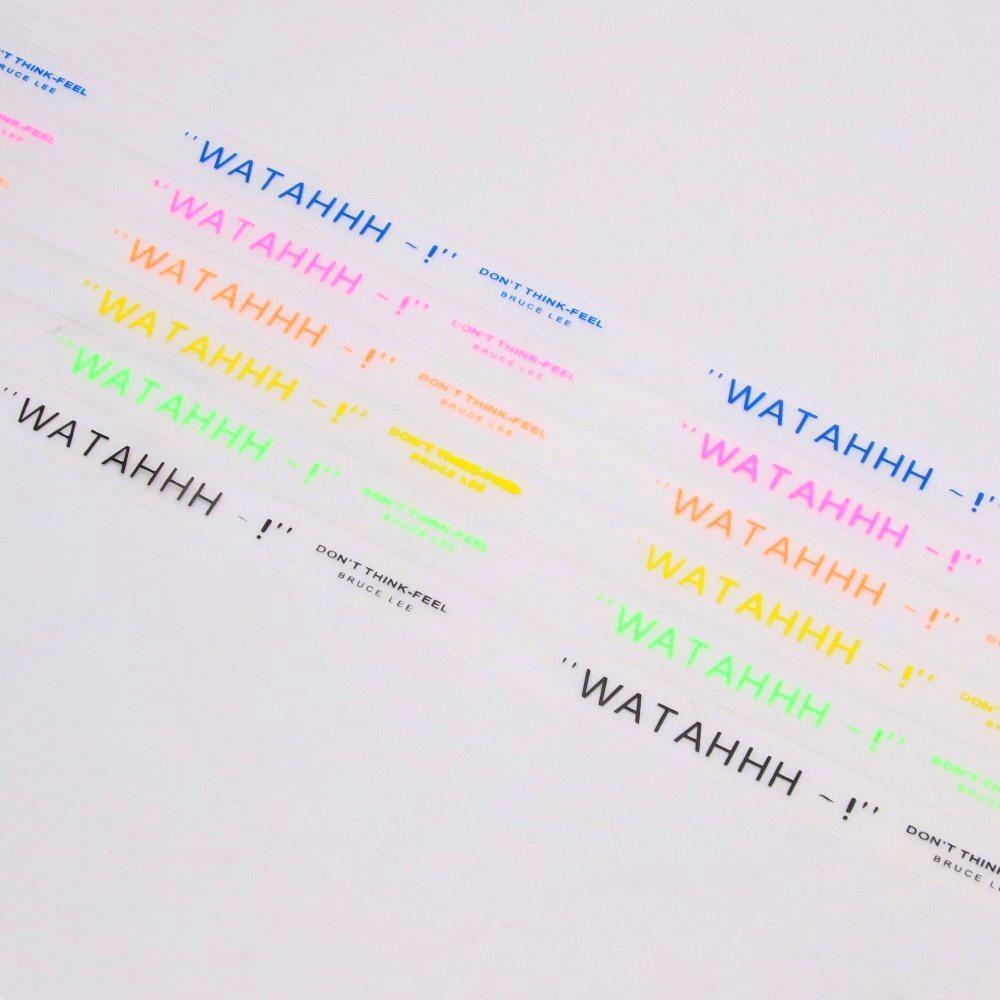 'T THINK-FEEL
BRUCE LEE
"WATAHHH ~!"
DON'T THINK-FEEL
BRUCE LEE
"WATAHHH ~!"
INK-FEEL
LEE
"WATAHHH ~!"
DON'T THINK-FEEL
BRUCE LEE
"WATAHHH ~!"
"WATAHHH ~!"
DON'T THINK-FEEL
BRUCE LEE
"WATAHHH ~!"
"WATAHHH ~!"
DON'T THINK-FEEL
BRUCE LEE
"WATAHHH ~!"
DON'T
"WATAHHH ~!"
DON'T THINK-FEEL
BRUCE LEE
"WATAHHH ~!"
DON'T TH
BRUCE
"WATAHHH ~!"
DON'T THINK-FEEL
BRUCE LEE
"WATAHHH ~!"
DON'T THINK
BRUCE LE